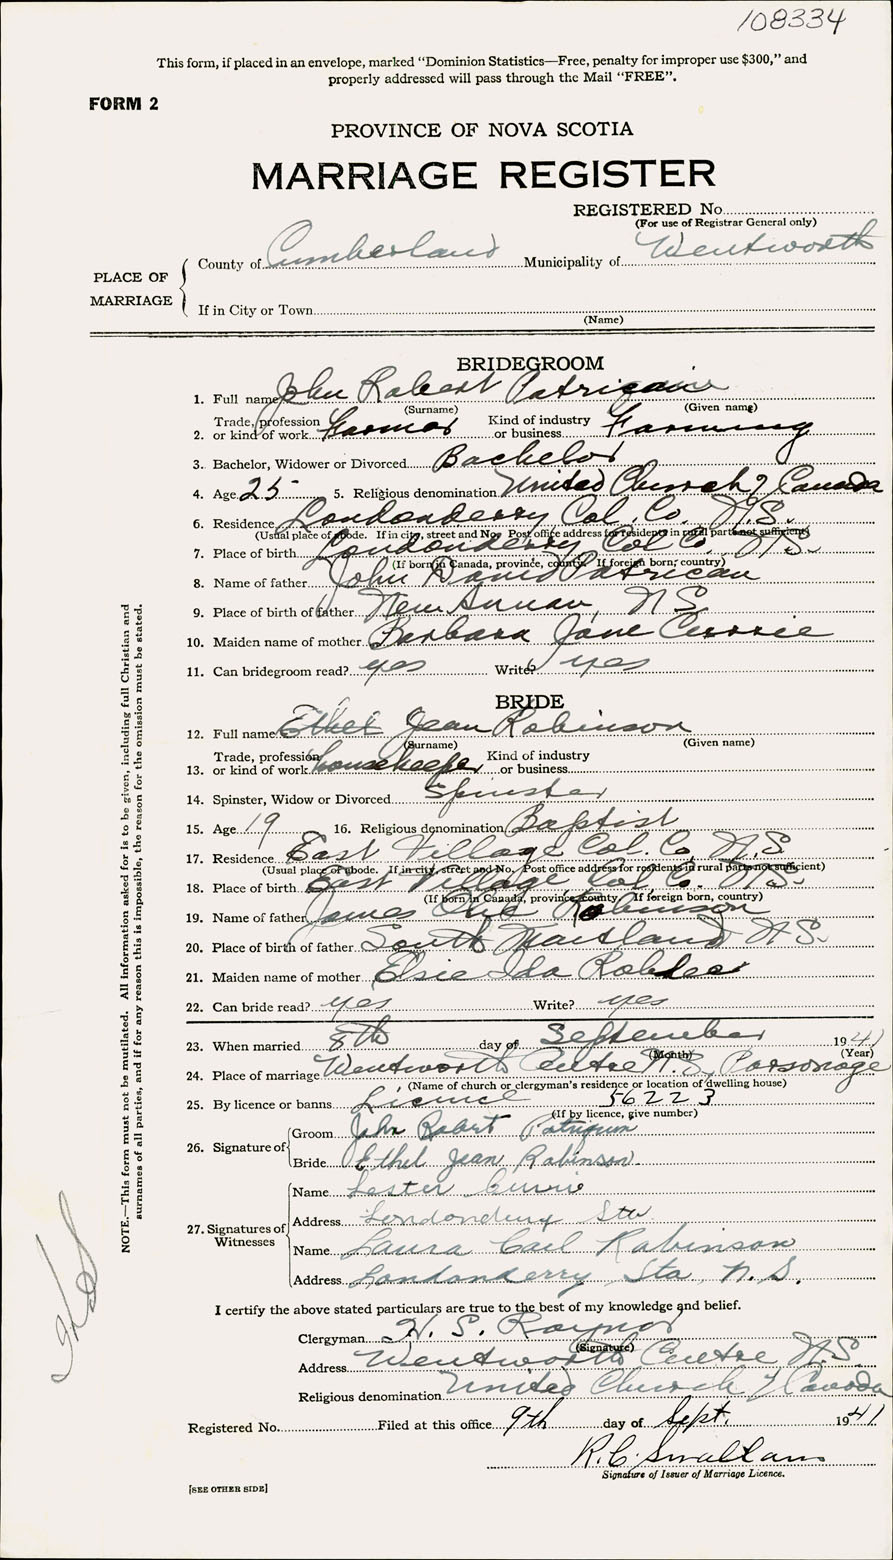 108334
This form, if placed in an envelope, marked "Dominion Statistics—Free, penalty for improper use $300," and
properly addressed will pass through the Mail "FREE".
FORM 2
PROVINCE OF NOVA SCOTIA
MARRIAGE REGISTER
REGISTERED No.
(For use of Registrar General only)
PLACE OF MARRIAGE
County of Cumberland Municipality of Wentworth
If in City or Town
(Name)
BRIDEGROOM
1. Full name John Robert Patriquin
(Surname) (Given name)
2. Trade, profession or kind of work Farmer Kind of industry or business Farming
3. Bachelor, Widower or Divorced Bachelor
4. Age 25 5. Religious denomination United Church of Canada
6. Residence Londonderry Col. Co. N.S.
(Usual place of abode. If in city, street and No. Post office address for residents in rural parts not sufficient)
7. Place of birth Londonderry Col Co. N.S.
(If born in Canada, province, county. If foreign born, country)
8. Name of father John David
9. Place of birth of father New Annan, N S
10. Maiden name of mother Barbara Jane Currie
11. Can bridegroom read? yes Write? yes
BRIDE
12. Full name Ethel Jean Robinson
(Surname) (Given name)
13. Trade, profession or kind of work housekeeper Kind of industry or business
14. Spinster, Widow or Divorced Spinster
15. Age 19 16. Religious denomination Baptist
17. Residence East Village Col. Co, N.S
(Usual place of abode. If in city, street and No. Post office address for residents in rural parts not sufficient)
18. Place of birth East Village Col Co. N.S.
(If born in Canada, province, county. If foreign born, country)
19. Name of father James Robinson
20. Place of birth of father South Maitland N.S.
21. Maiden name of mother Elsie Ida
22. Can bride read? yes Write? yes
23. When married 8th day of September 1941
(Month) (Year)
24. Place of marriage Wentworth Centre N.S. Parsonage
(Name of church or clergyman's residence or location of dwelling house)
25. By licence or banns Licence 56223
(If by licence, give number)
26. Signature of
Groom John Robert Patriquin
Bride Ethel Jean Robinson.
27. Signatures of Witnesses
Name Lester Currie
Address Londonderry Sta
Name Laura Robinson
Address Londonderry Sta, N.S.
I certify the above stated particulars are true to the best of my knowledge and belief.
Clergyman H. S. Raynor
(Signature)
Address Wentworth Centre N.S.
Religious denomination United Church of Canada
Registered No. Filed at this office 9th day of Sept. 1941
R.C.
Signature of Issuer of Marriage Licence.
[SEE OTHER SIDE]
NOTE.—This form must not be mutilated. All information asked for is to be given, including full Christian and
surnames of all parties, and if for any reason this is impossible, the reason for the omission must be stated.